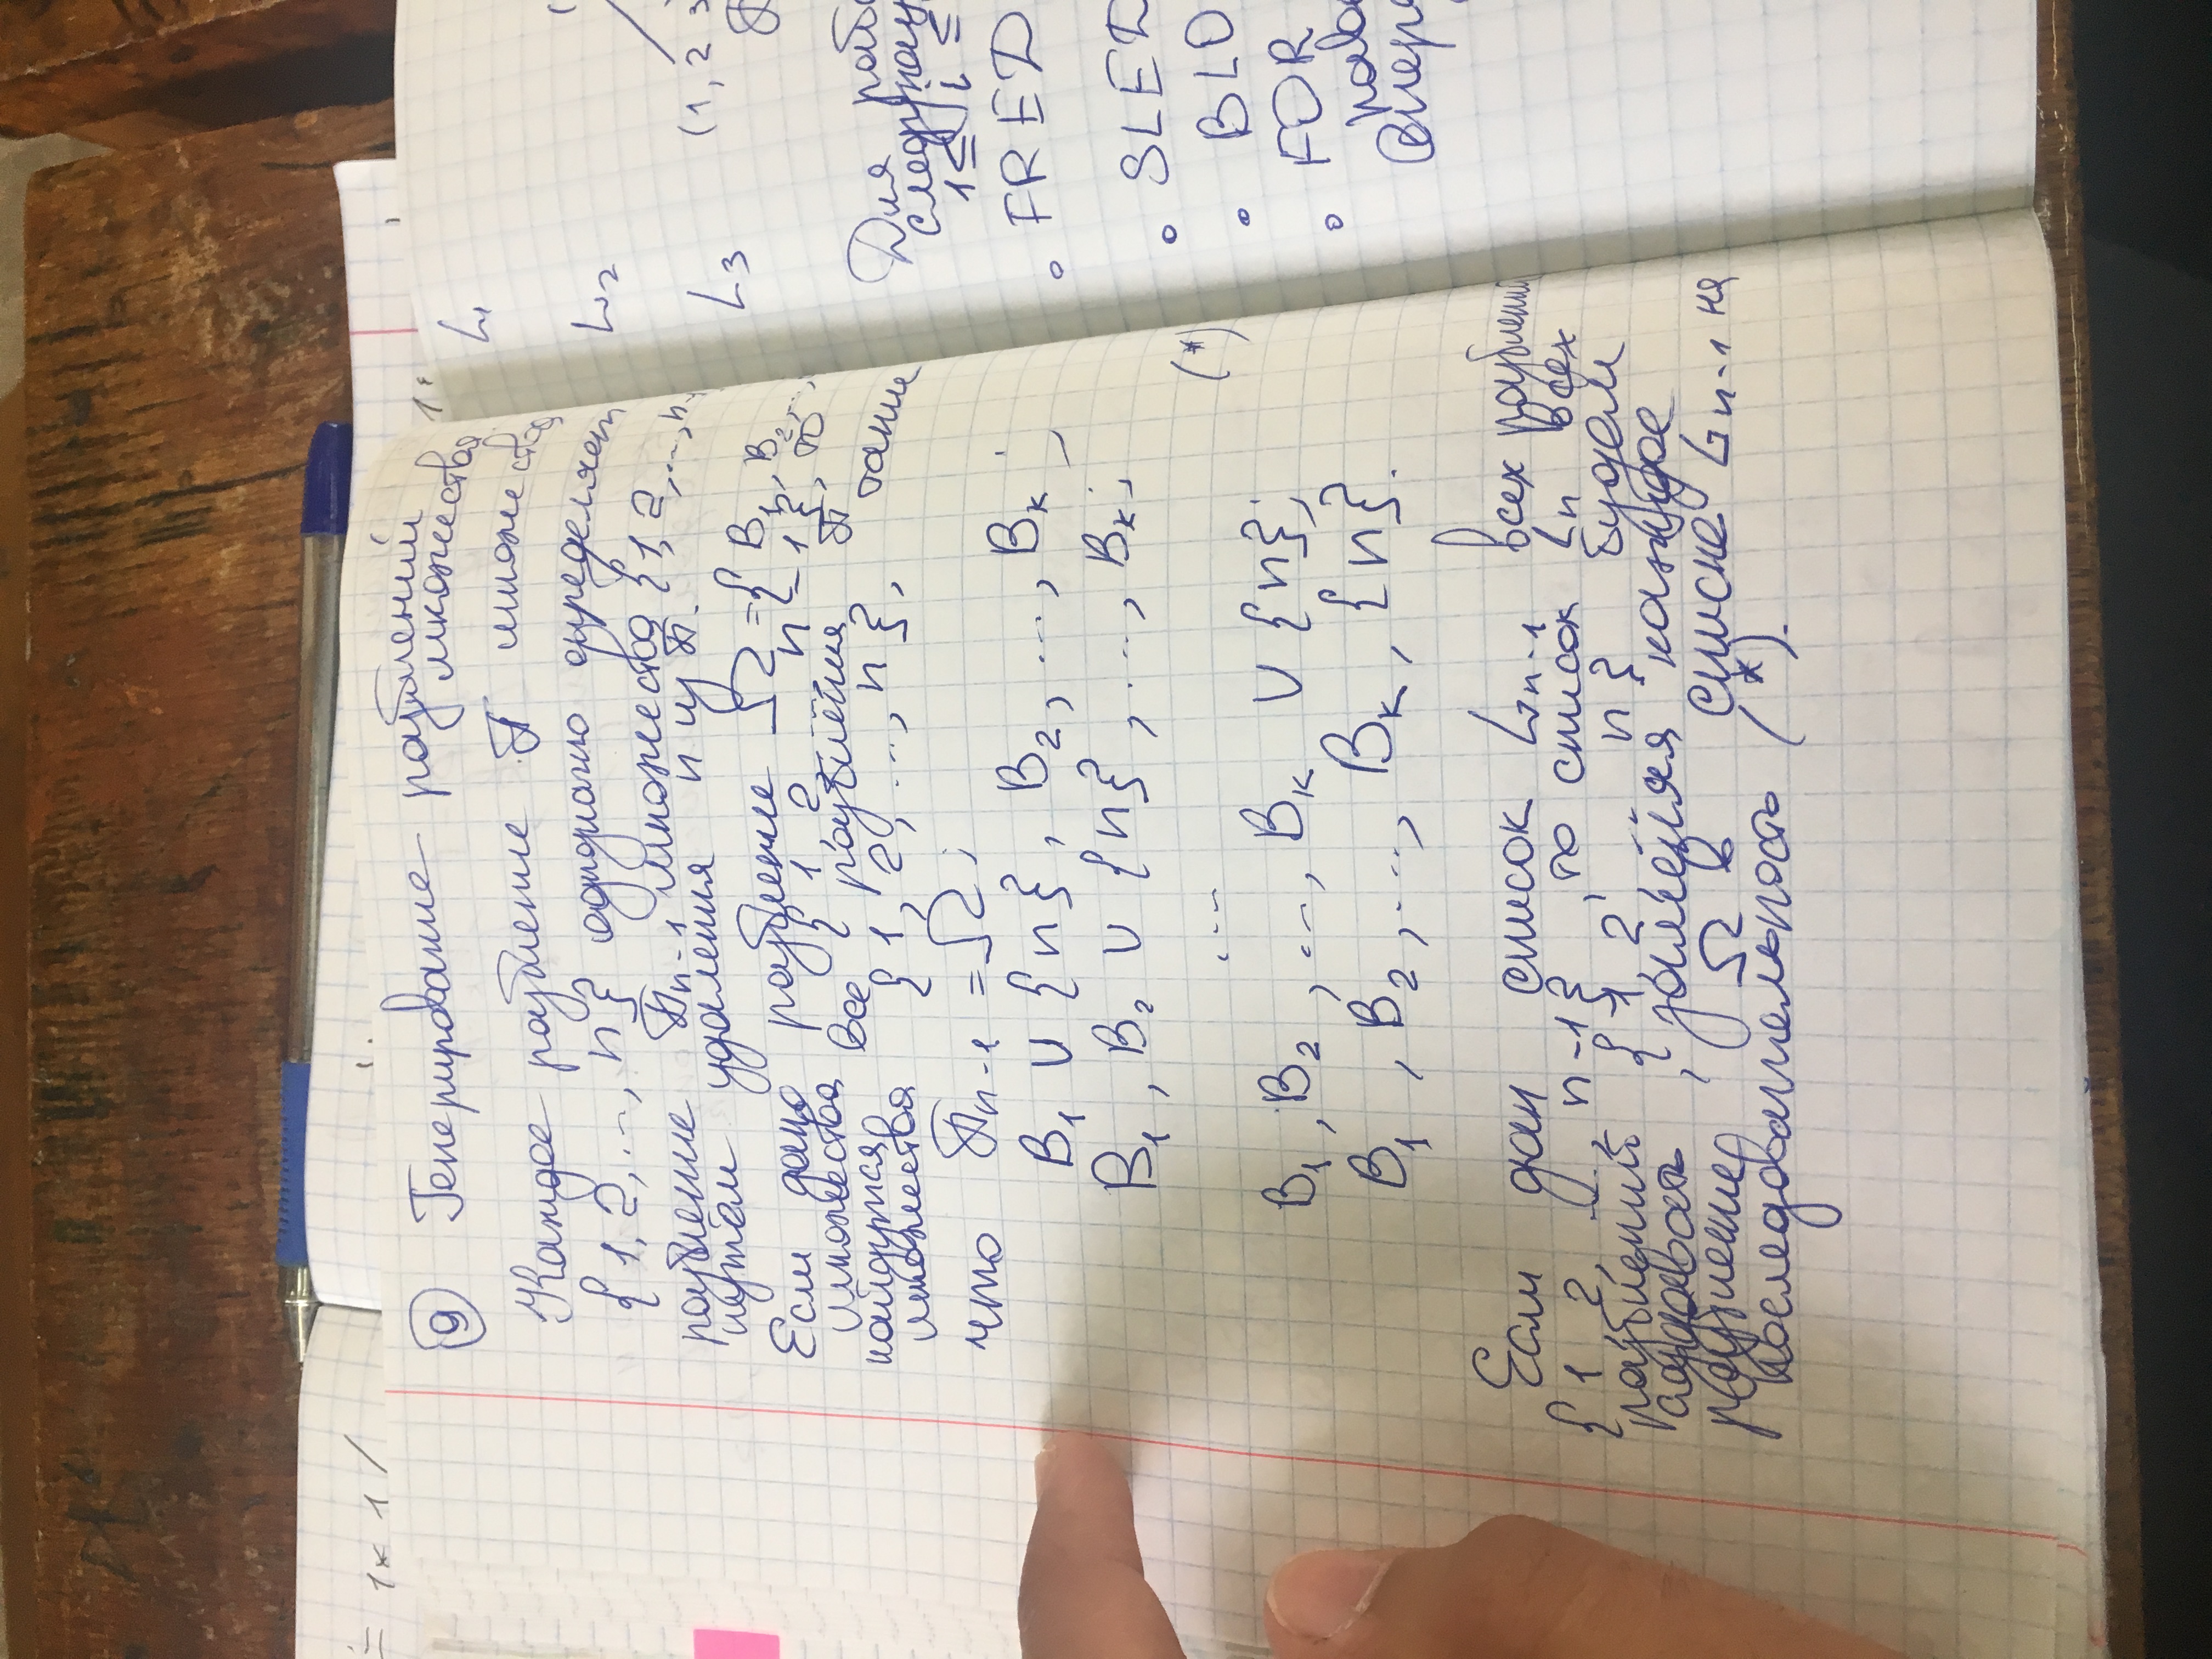 = 1 * 1 /
9 Генерирование разбиений
множества
Каждое разбиение П множества
{1, 2, ..., n} однозначно определяет
разбиение Пn-1 множества {1, 2, ..., n-
путём удаления n из П.
Если дано разбиение Ω = { B1, B2, ...,
множества { 1, 2, ..., n-1}, то
найдутся все разбиения П
множества {1, 2, ..., n}, такие
что Пn-1 = Ω;
B1 ∪ {n}, B2, ..., Bk ;
B1, B2 ∪ {n}, ..., Bk;
...
(*)
B1, B2, ..., Bk ∪ {n};
B1, B2, ..., Bk, {n}.
Если дан список Ln-1 всех разбиений
{1, 2, ..., n-1}, то список Ln всех
разбиений {1, 2, ... n} будем
создавать, заменяя каждое
разбиение Ω в списке Ln-1 на
последовательность (*).
L1
L2
L3 (1, 2 3
П
Для
1 ≤ i ≤
• FRED
• SLED
• BLO
• FOR